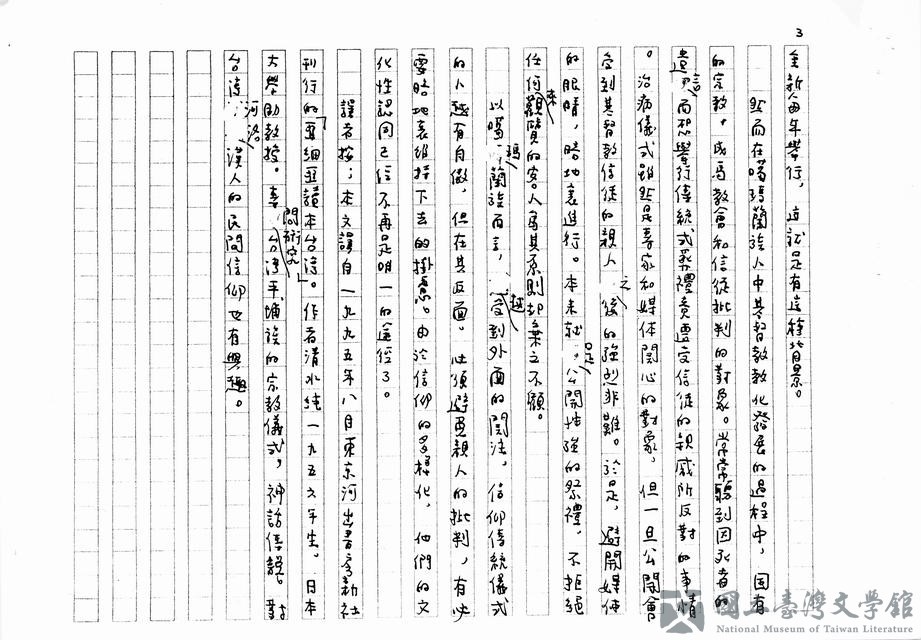 3
全新人每年舉行，這就是有這種背景。
然而在噶瑪蘭族人中基督教教化發展的過程中，固有
的宗教，成為教會和信徒批判的對象。常常聽到因死者的
遺言而想舉行傳統式葬禮竟要受信徒的親戚所反對的事情
。治病儀式雖然是專家和媒体関心的對象，但一旦公開會
受到基督教信徒的親人之後的強烈非難。於是，避開媒体
的眼睛，暗地裏進行。本來就是公開性強的祭禮，不拒絕
任何來觀覽的客人為其原則却棄之不顧。
以噶瑪蘭族而言，越受到外面的関注，信仰傳統儀式
的人越有自傲，但在其反面。必須避免親人的批判，有必
要暗地裏維持下去的掛慮。由於信仰的多様化，他們的文
化性認同已信不再是唯一的途徑了。
譯者按；本文譯自一九九五年八月東京河出書房新社
刊行的「亞細亞讀本台湾。作者清水純一九五六年生。日本
大學助教授。專問研究」台湾平埔族的宗教儀式，神話傳說。對
台湾河洛漢人的民間信仰也有興趣。
國立臺灣文學館
National Museum of Taiwan Literature